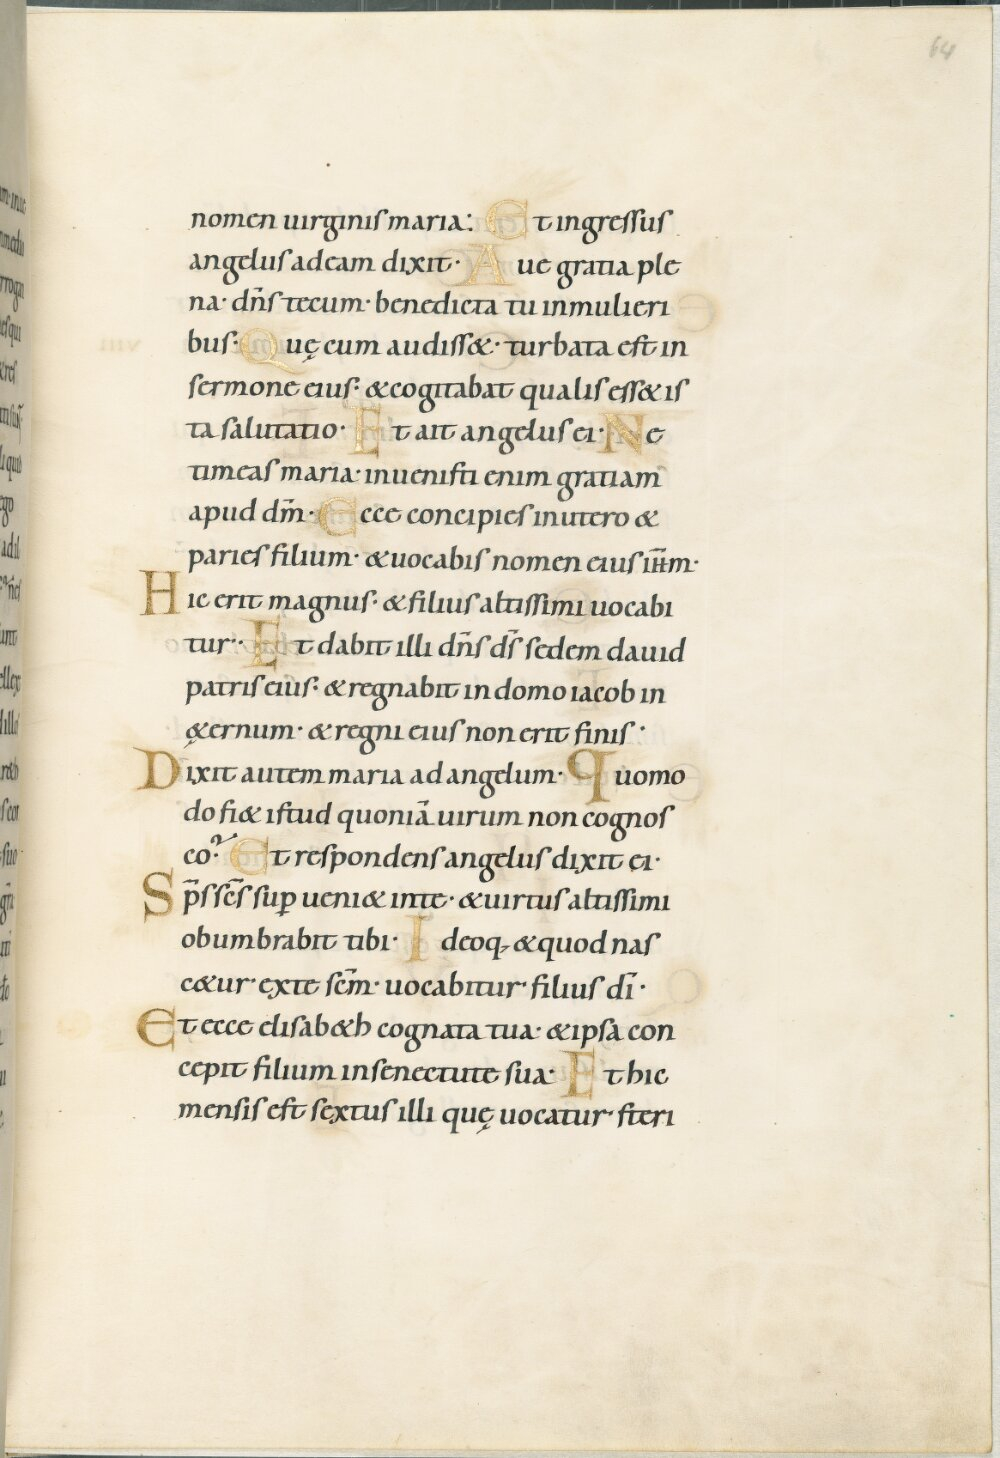 64
nomen uirginis maria: Et ingressus
angelus ad eam dixit· Aue gratia ple
na· dn̄s tecum· benedicta tu in mulieri
bus· Quę cum audiss&· turbata est in
sermone eius· & cogitabat qualis ess& is
ta salutatio· Et ait angelus ei· Ne
timeas maria· inuenisti enim gratiam
apud dm̄· Ecce concipies in utero &
paries filium· & uocabis nomen eius ih̄m·
Hic erit magnus· & filius altissimi uocabi
tur·· Et dabit illi dn̄s ds̄ sedem dauid
patris eius· & regnabit in domo iacob in
&ernum· & regni eius non erit finis·
Dixit autem maria ad angelum· Quomo
do fi& istud quoniā uirum non cognos
co? Et respondens angelus dixit ei·
Sp̄s sc̄s sup̱ ueni& in te· & uirtus altissimi
obumbrabit tibi· Ideoq; & quod nas
c&ur· ex te sc̄m· uocabitur· filius dī·
Et ecce elisab&h cognata tua· & ipsa con
cepit filium in senectute sua· Et hic
mensis est sextus illi quę uocatur· steri